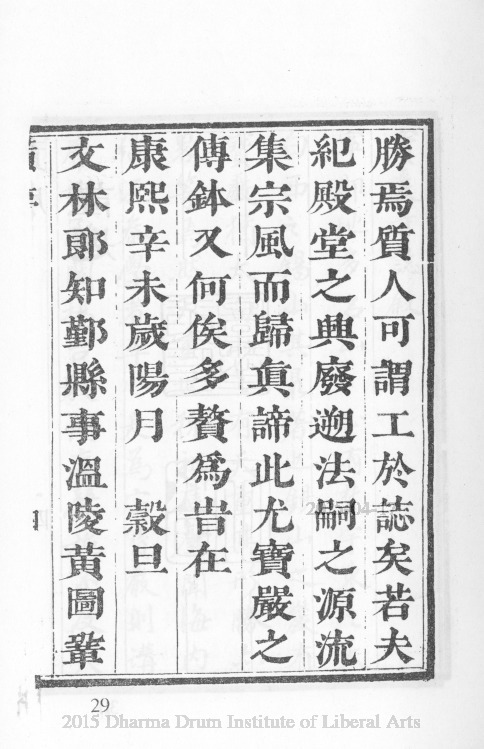 勝焉質人可謂工於誌矣若夫
紀殿堂之興廢遡法嗣之源流
集宗風而歸眞諦此尤寶嚴之
傳鉢又何俟多贅爲旹在
康熙辛未歲陽月　穀旦
文林郎知鄞縣事溫陵黄圖鞏
29
2015 Dharma Drum Institute of Liberal Arts